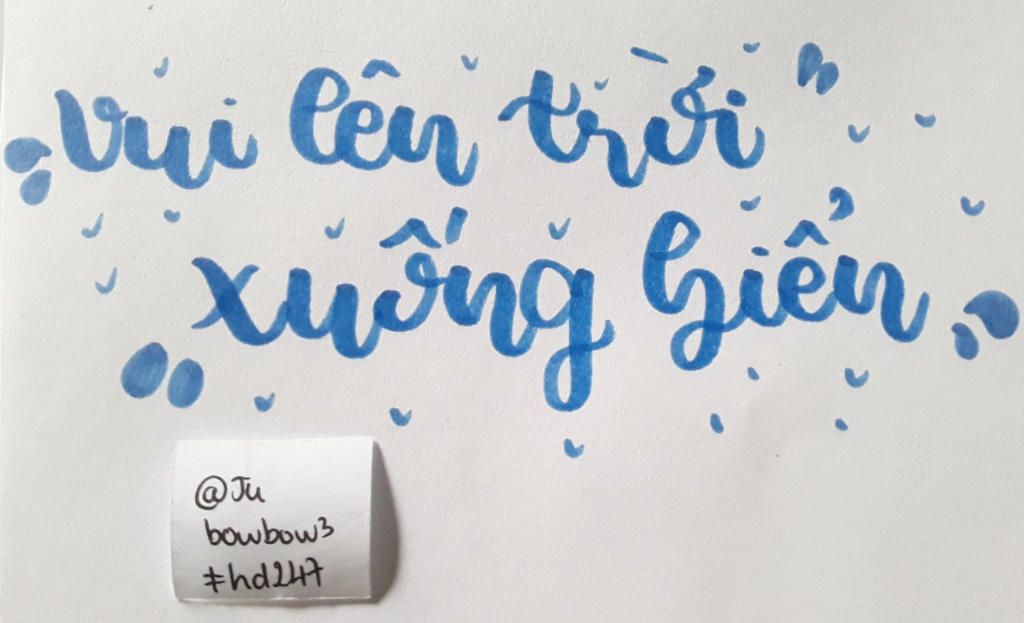 Vui lên trời
xuống biển
@Ju
bowbow3
#hd247